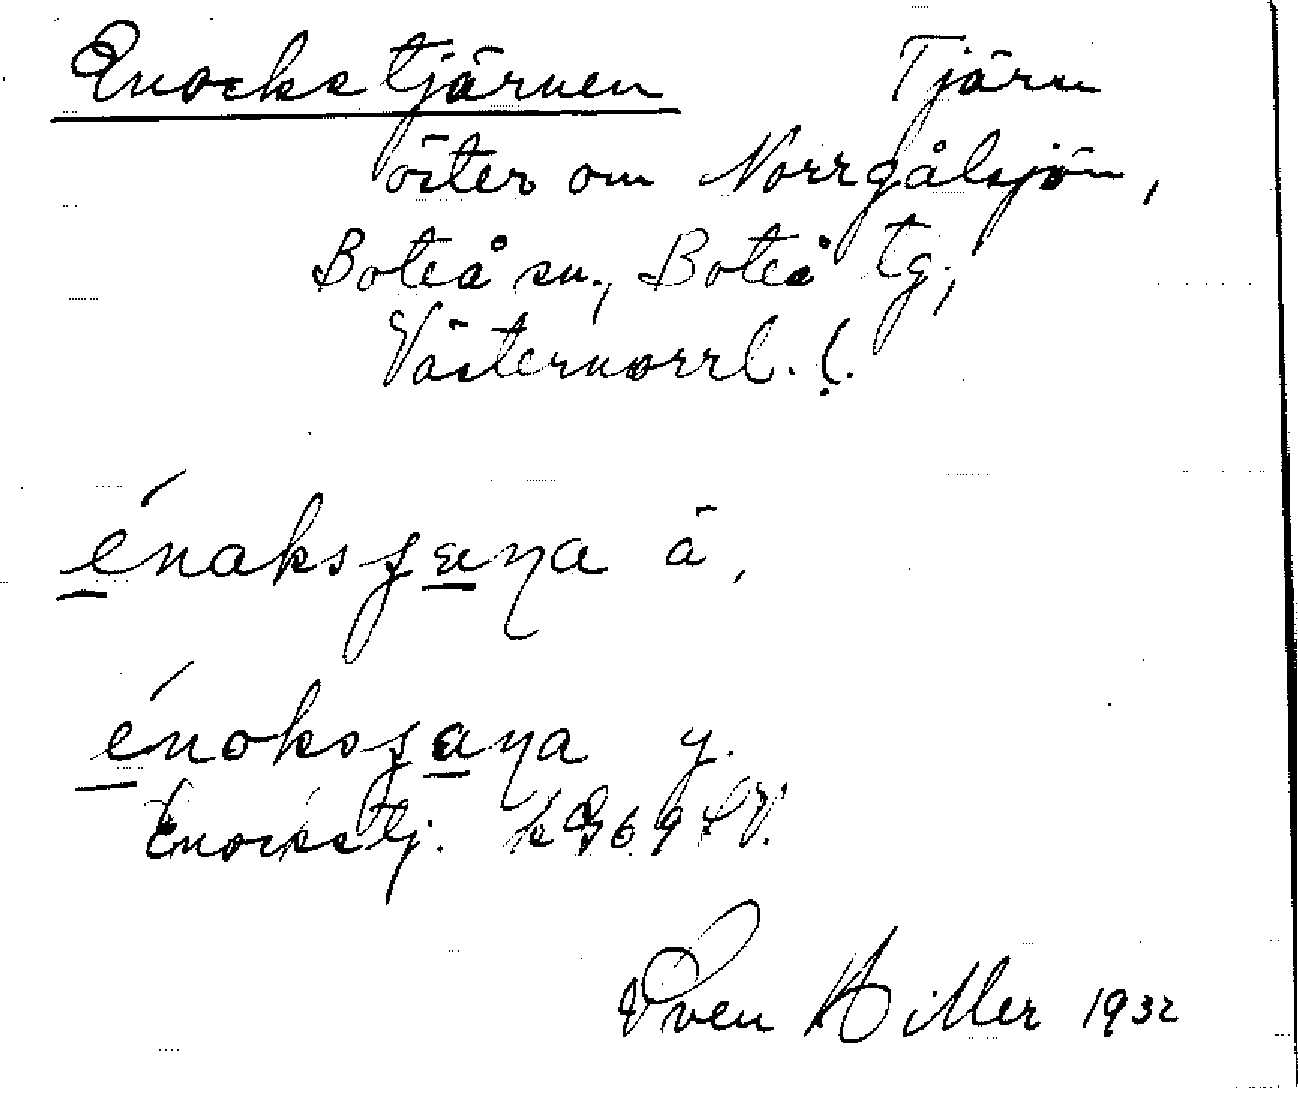 Enockstjärnen Tjärn
öster om Norrgålsjön,
Boteå sn., Boteå tg,
Västernorrl. l.
énaksʃæɳa ä,
énoksʃaɳa y.
Enockstj.
Sven Hiller 1932